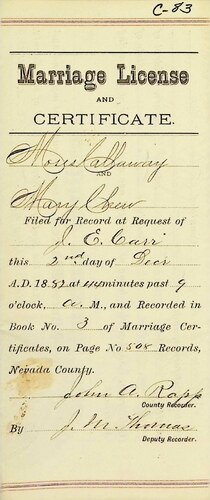 C-83
Marriage License
AND
CERTIFICATE.
Callaway
AND
Mary Chew
Filed for Record at Request of
J. E. Carr
this 2nd day of Decr
A.D. 1882 at minutes past 9
o'clock, a. M., and Recorded in
Book No. 3 of Marriage Cer-
tificates, on Page No 508 Records,
Nevada County.
John A. Rapp
County Recorder.
By J. M. Thomas
Deputy Recorder.